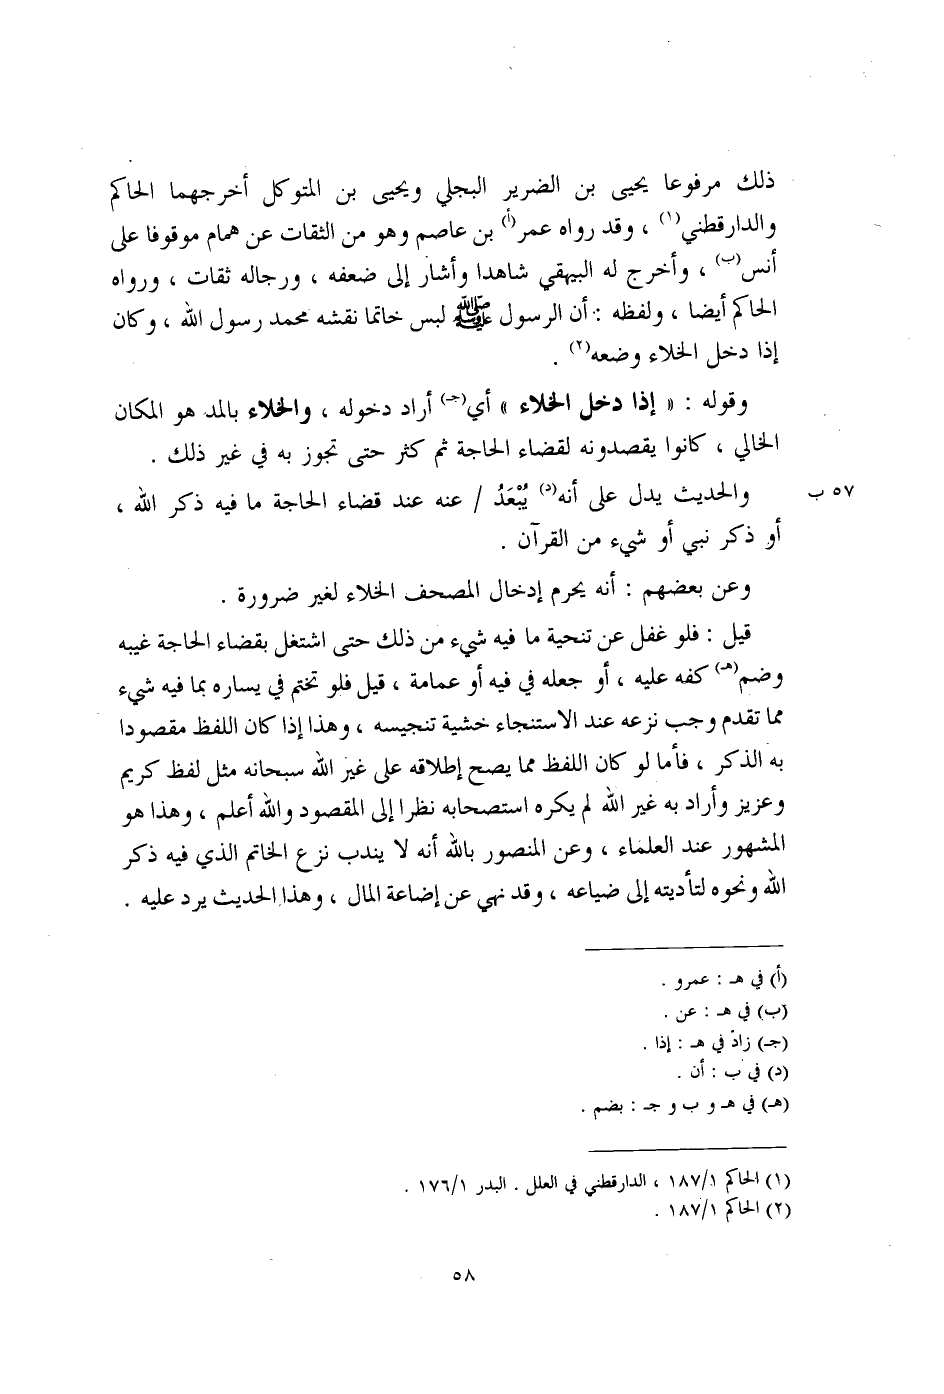 ذلك مرفوعا يحيى بن الضرير البجلي ويحيى بن المتوكل أخرجهما الحاكم
والدارقطني(١) ، وقد رواه عمر(أ) بن عاصم وهو من الثقات عن همام موقوفا على
أنس(ب) ، وأخرج له البيهقي شاهدا وأشار إلى ضعفه ، ورجاله ثقات ، ورواه
الحاكم أيضا ، ولفظه : أن الرسول ﷺ لبس خاتما نقشه محمد رسول الله ، وكان
إذا دخل الخلاء وضعه(٢) .
وقوله : « إذا دخل الخلاء » أي(جـ) أراد دخوله ، والخلاء بالمد هو المكان
الخالي ، كانوا يقصدونه لقضاء الحاجة ثم كثر حتى تجوز به في غير ذلك .
والحديث يدل على أنه(د) يُبْعَدُ / عنه عند قضاء الحاجة ما فيه ذكر الله ، ٥٧ ب
أو ذكر نبي أو شيء من القرآن .
وعن بعضهم : أنه يحرم إدخال المصحف الخلاء لغير ضرورة .
قيل : فلو غفل عن تنحية ما فيه شيء من ذلك حتى اشتغل بقضاء الحاجة غيبه
وضم(هـ) كفه عليه ، أو جعله في فيه أو عمامة ، قيل فلو تختم في يساره بما فيه شيء
مما تقدم وجب نزعه عند الاستنجاء خشية تنجيسه ، وهذا إذا كان اللفظ مقصودا
به الذكر ، فأما لو كان اللفظ مما يصح إطلاقه على غير الله سبحانه مثل لفظ كريم
وعزيز وأراد به غير الله لم يكره استصحابه نظرا إلى المقصود والله أعلم ، وهذا هو
المشهور عند العلماء ، وعن المنصور بالله أنه لا يندب نزع الخاتم الذي فيه ذكر
الله ونحوه لتأديته إلى ضياعه ، وقد نهي عن إضاعة المال ، وهذا الحديث يرد عليه .
(أ) في هـ : عمرو .
(ب) في هـ : عن .
(جـ) زاد في هـ : إذا .
(د) في ب : أن .
(هـ) في هـ و ب و جـ : بضم .
(١) الحاكم ١٨٧/١ ، الدارقطني في العلل . البدر ١٧٦/١ .
(٢) الحاكم ١٨٧/١ .
٥٨